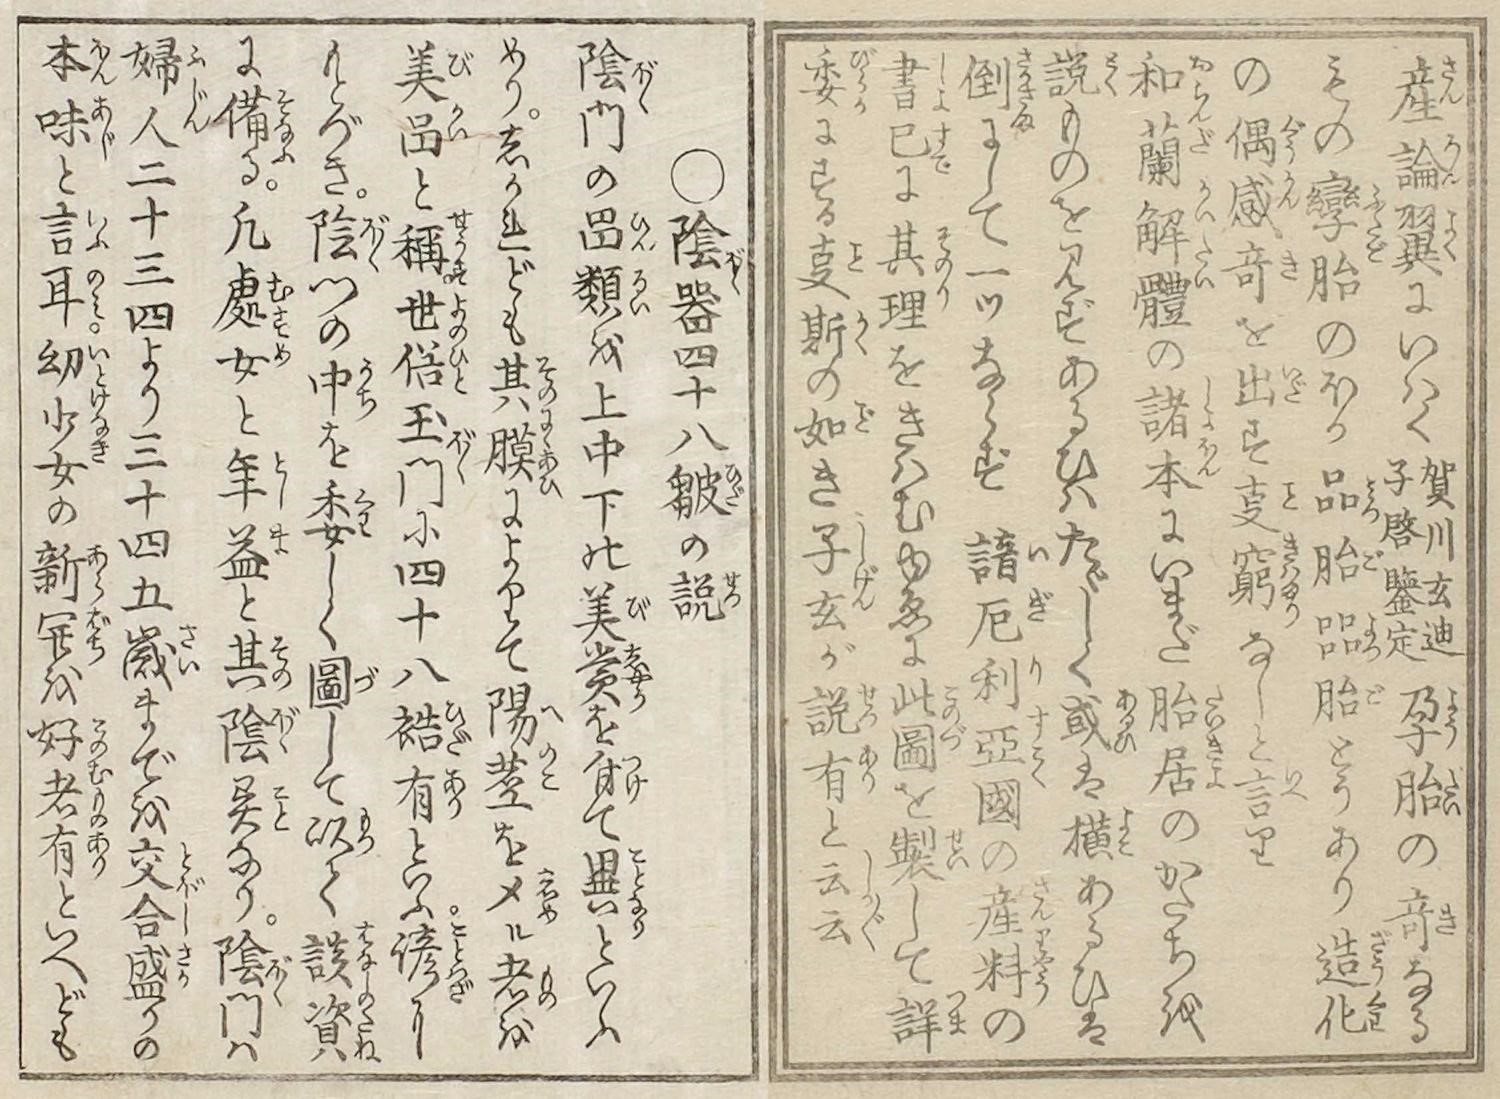 産論翼にいはく賀川玄迪子啓鑒定孕胎の竒なる
その孿胎のほか品胎㗊胎とうあり造化
の偶感竒を出す叓窮なしと言り
和蘭解體の諸本にいまだ胎居のかたちを
説ものを見ずあるひハたゞしく或は横あるひは
倒にして一ツならず諳厄利亞國の産科の
書已に其理をきハむゆゑに此圖を製して詳
委にする叓斯の如き子玄が説有と云云
〇陰器四十八皺の説
陰門の品類を上中下の美賞を付て異といふ
めり。しかれども其膜によりて陽莖をメル者を
美品と稱。世俗玉門に四十八襞有といふ。諺に
もとづき。陰門の中を委しく圖して以て談資
に備る。凡處女と年益と其陰異なり。陰門ハ
婦人二十三四より三十四五歳までを交合盛りの
本味と言耳。幼少女の新開を好者有といへども